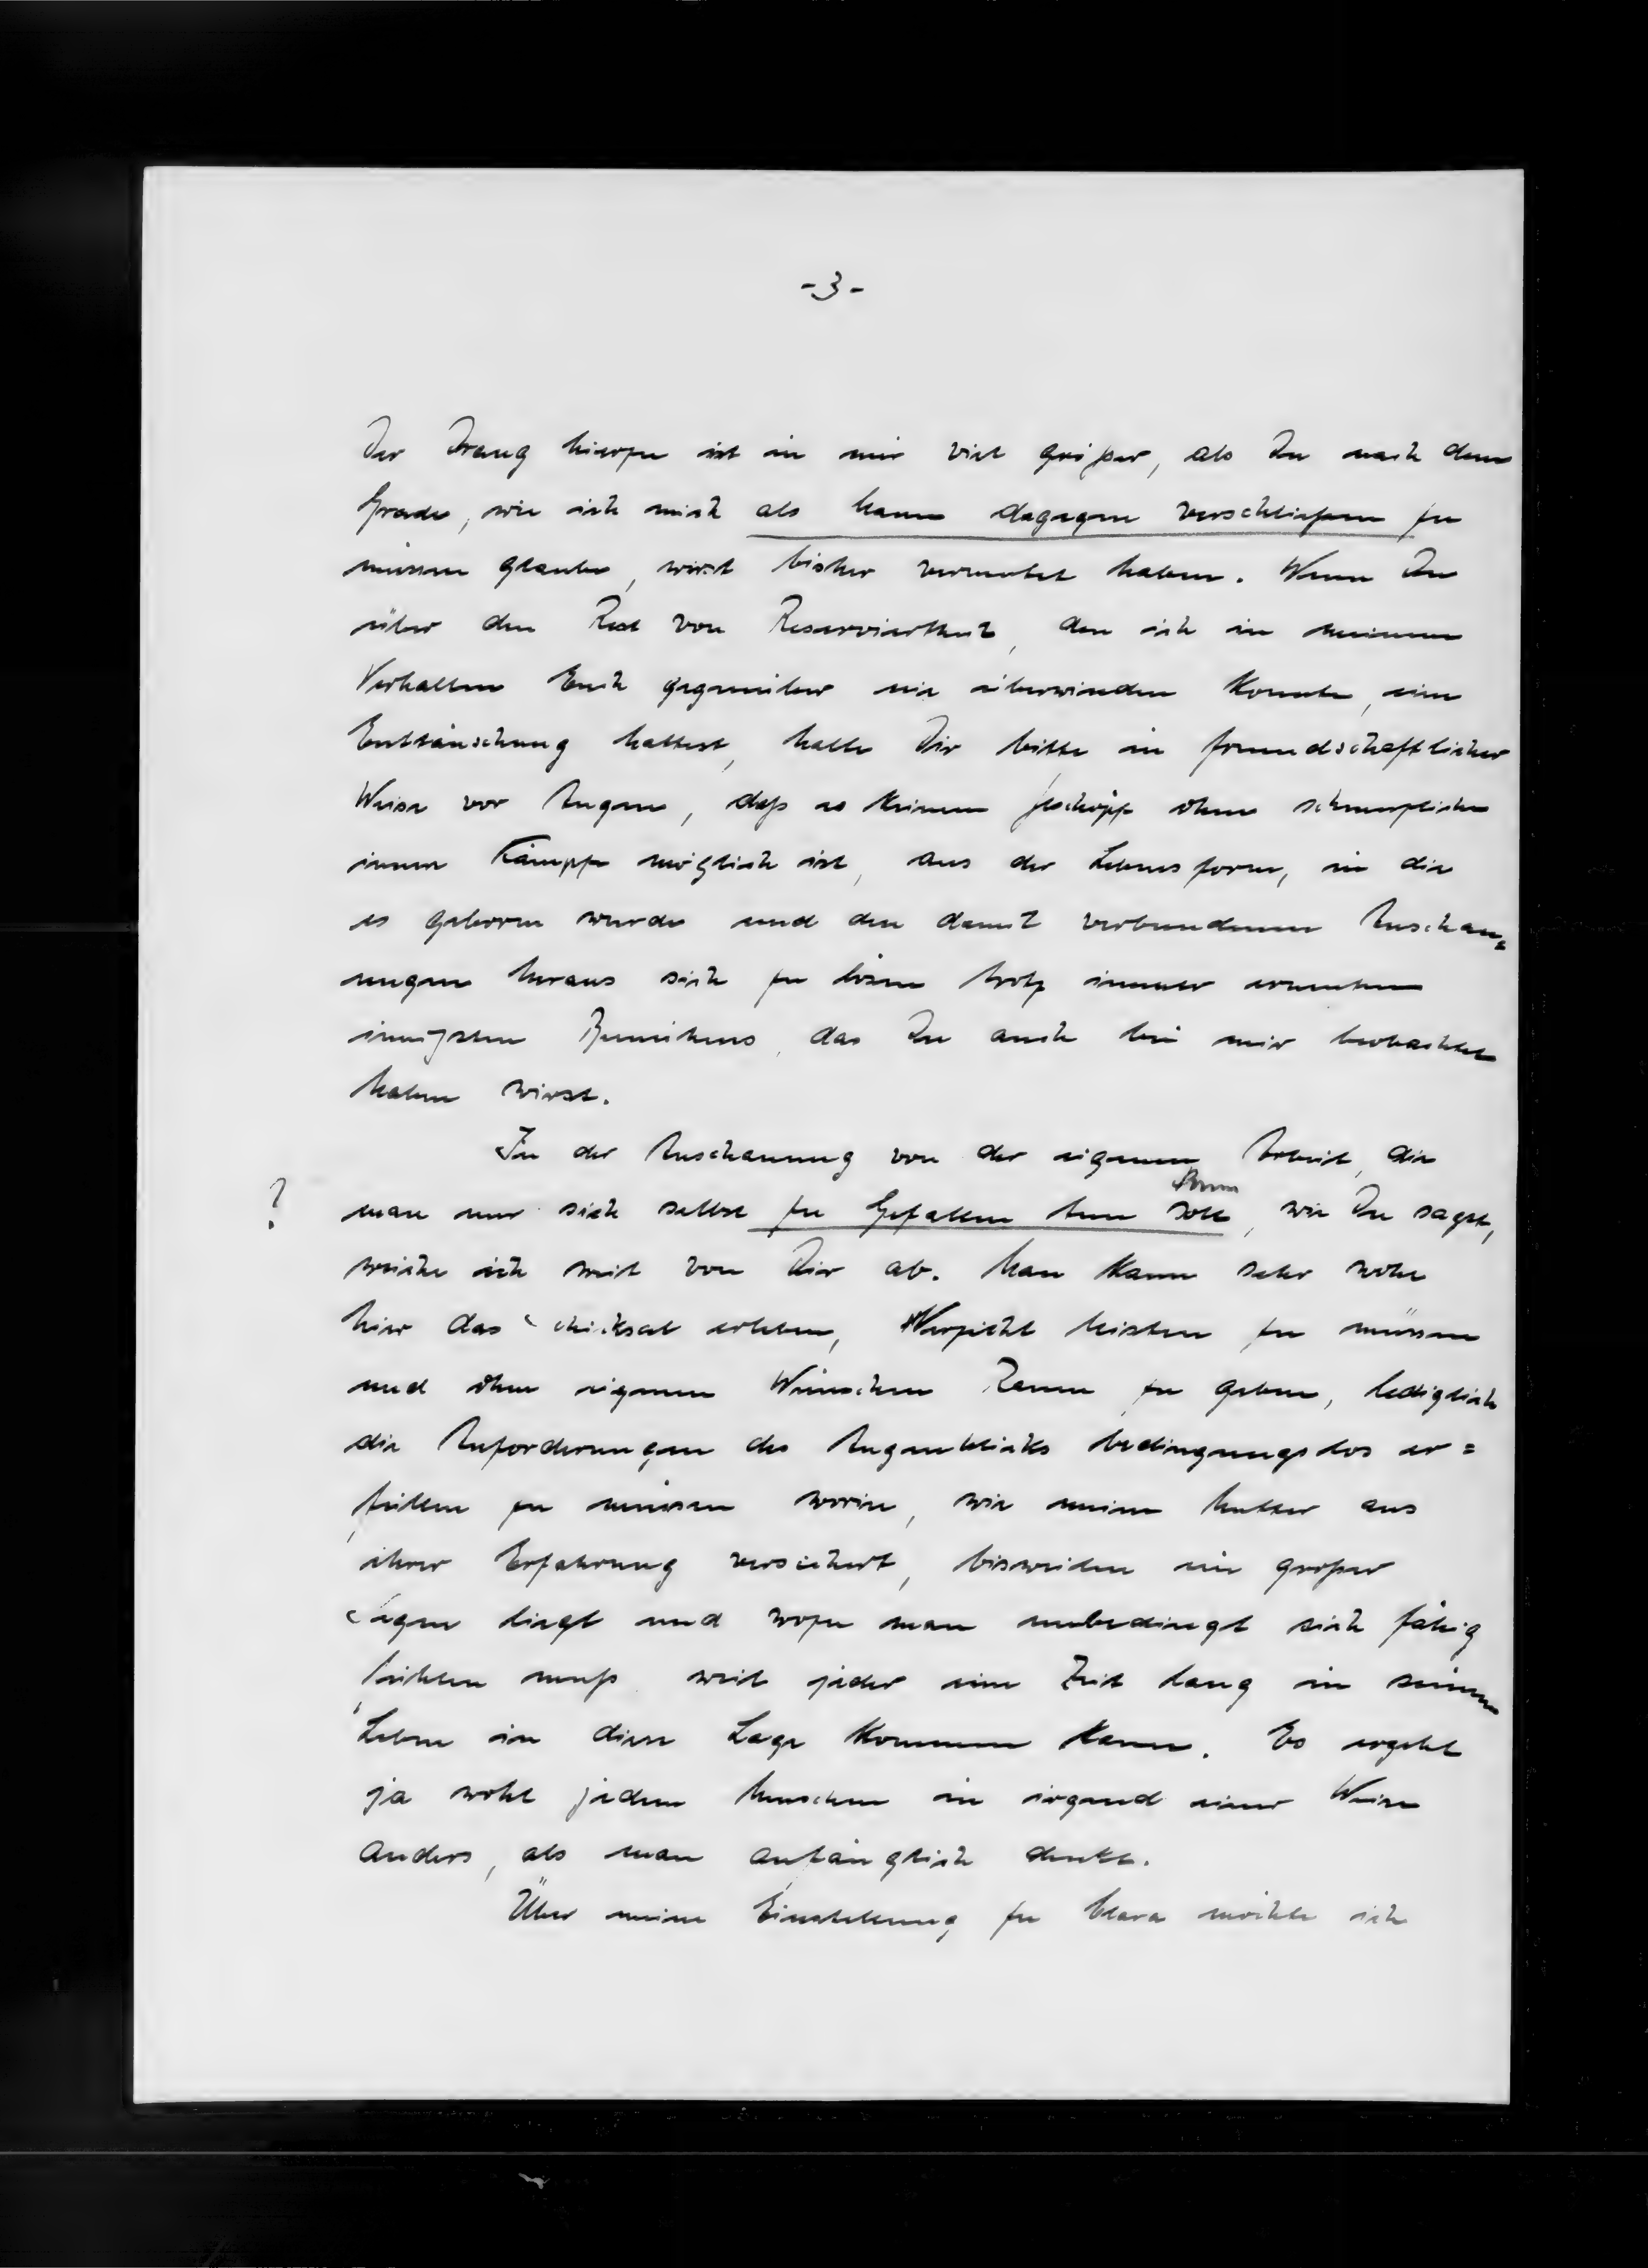 -3-
Der Drang hierzu ist in mir viel größer, als Du nach dem
Grade, wie ich mich als Mann dagegen verschließen zu
müssen glaube, wirst bisher vermutet haben. Wenn Du
über den Rest von Reserviertheit, den ich in meinem
Verhalten Euch gegenüber nie überwinden konnte, eine
Enttäuschung hattest, halte Dir bitte in freundschaftlicher
Weise vor Augen, daß es keinem Geschöpf ohne schmerzliche
innere Kämpfe möglich ist, aus der Lebensform, in die
es geboren wurde und den damit verbundenen Anschau=
ungen heraus sich zu lösen trotz immer erneuten
innigsten Bemühens, das Du auch bei mir beobachtet
haben wirst.
In der Anschauung von der eigenen Arbeit, die
kann
? man nur sich selbst zu Gefallen tun soll, wie Du sagst,
weiche ich weit von Dir ab. Man kann sehr wohl
hier das Schicksal erleben, Verzicht leisten zu müssen
und ohne eigenen Wünschen Raum zu geben, lediglich
die Anforderungen des Augenblicks bedingungslos er=
füllen zu müssen worin, wie meine Mutter aus
ihrer Erfahrung versichert, bisweilen ein großer
Segen liegt und wozu man unbedingt sich fähig
fühlen muß weil jeder eine Zeit lang in seinem
Leben in diese Lage kommen kann. Es ergeht
ja wohl jedem Menschen in irgend einer Weise
anders, als man anfänglich denkt.
Über meine Einstellung zu Clara möchte ich